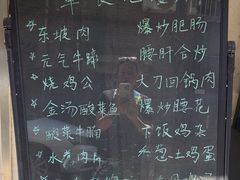 东坡肉
元气牛蹄
烧鸡公
金汤酸菜鱼
酸菜牛腩
水煮肉片
爆炒肥肠
腰肝合炒
大刀回锅肉
爆炒腰花
下饭鸡杂
小葱土鸡蛋